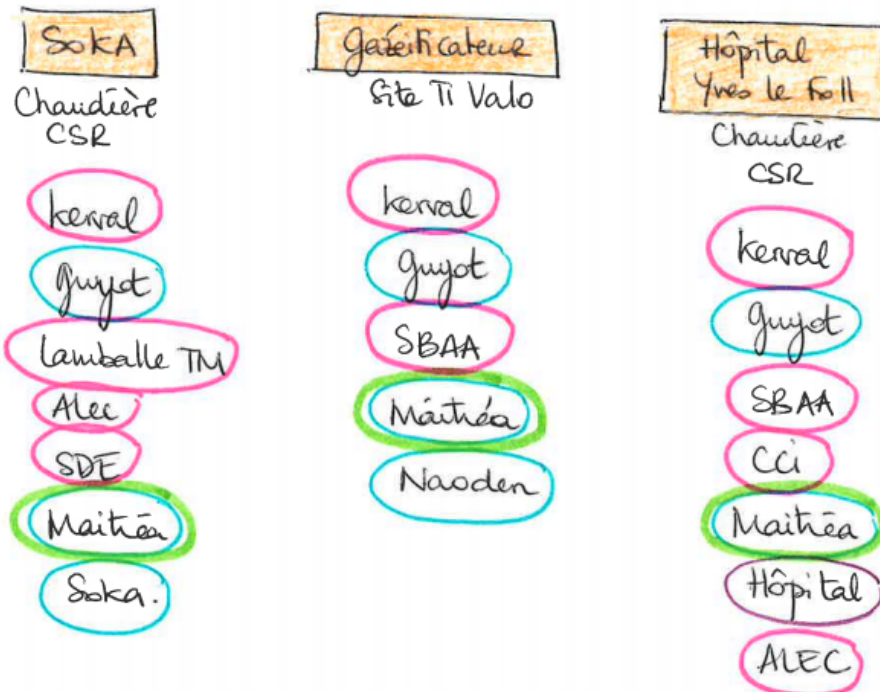 SOKA
Chaudière
CSR
kerval
guyot
Lamballe TM
Alec
SDE
Maitréa
Soka.
Gazéificateur
Site Ti Valo
kerval
guyot
SBAA
Maitréa
Naoden
Hôpital
Yves le Foll
Chaudière
CSR
kerval
guyot
SBAA
CCi
Maitréa
Hôpital
ALEC